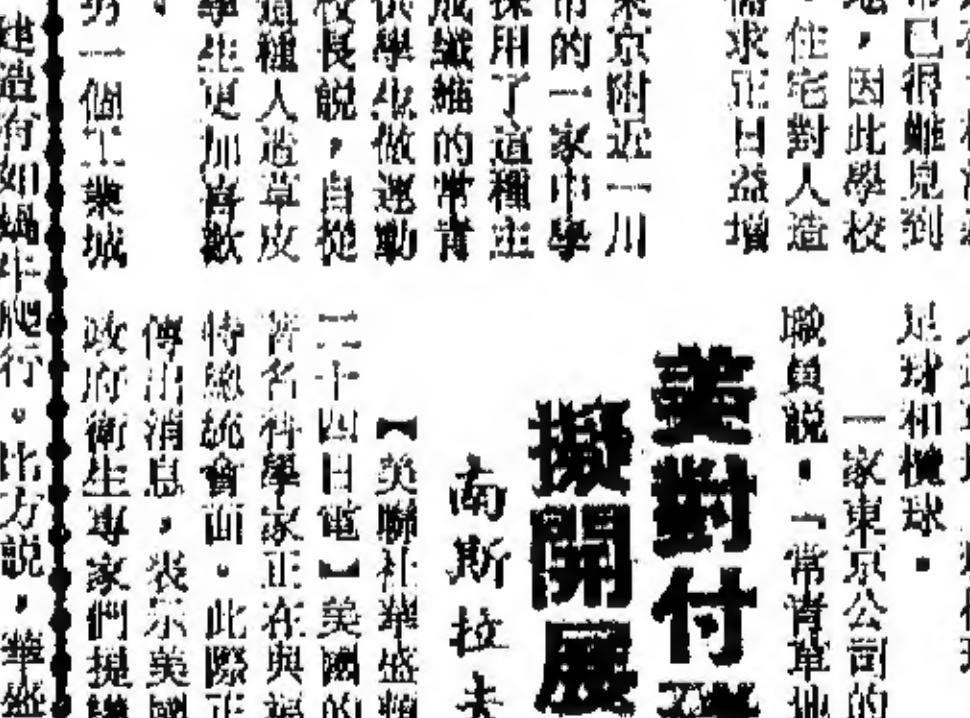 常已很難見到
地，因此學校
住宅對人造
需求正日益增
東京附近一川
市的一家中學
採用了這種主
成纖維的常青
供學生做運動
校長説，自從
這種人造草皮
學生更加喜歡
另一個工業城
足球和欖球。
一家東京公司的
職員説：「常青草地
美對付
擬開展
南斯拉夫
【美聯社華盛頓
二十四日電】美國的
著名科學家正在與福
特總統會面。此際正
傳出消息，表示美國
政府衛生專家們提議
建造有如蝸牛爬行。比方説，華盛